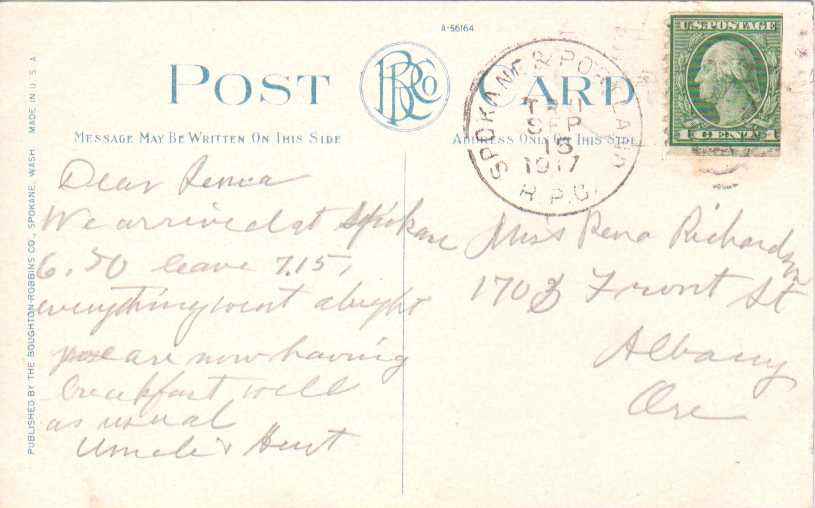 A-56164
POST CARD
BRCo
MESSAGE MAY BE WRITTEN ON THIS SIDE
ADDRESS ONLY ON THIS SIDE
U.S. POSTAGE
1 CENT 1
SPOKANE & PORTLAND
SEP
15
1917
R.P.O.
PUBLISHED BY THE BOUGHTON-ROBBINS CO., SPOKANE, WASH. MADE IN U.S.A.
Dear
We arrived at Spokane
6.50 leave 7.15,
everything went alright
are now having
breakfast well
as usual
Uncle &
Miss Rena Richardson
1703 Front St
Albany
Ore